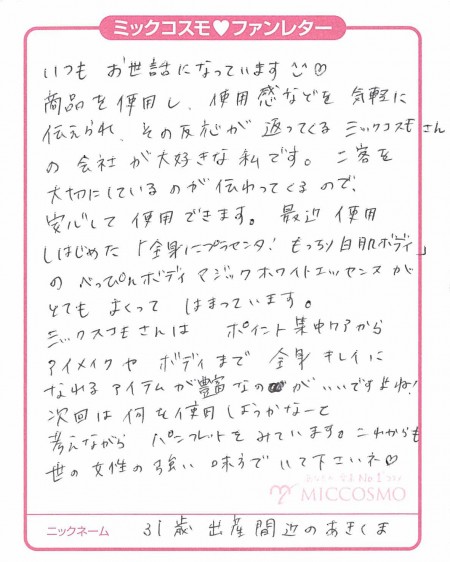 ミックコスモ♥ファンレター
いつも お世話になっています♡
商品を使用し、使用感などを 気軽に
伝えられ、その反応が 返ってくる ミックコスモさん
の 会社 が 大好きな 私です。 ご客を
大切にしているのが伝わってくるので、
安心して 使用できます。 最近 使用
しはじめた 「全身にプラセンタ! もっちり白肌ボディ」
の べっぴんボディ マジックホワイトエッセンスが
とても よくって はまっています。
ミックスコモさんは ポイント集中ケアから
アイメイクや ボディまで 全身 キレイに
なれる アイテムが豊富なのがいいですよね!
次回は 何を使用しようかなーと
考えながら パンフレットをみています。これからも
世の女性の強い 味方で いて下さいネ♡
No.1
MICCOSMO
ニックネーム 31歳 出産間近のあきくま